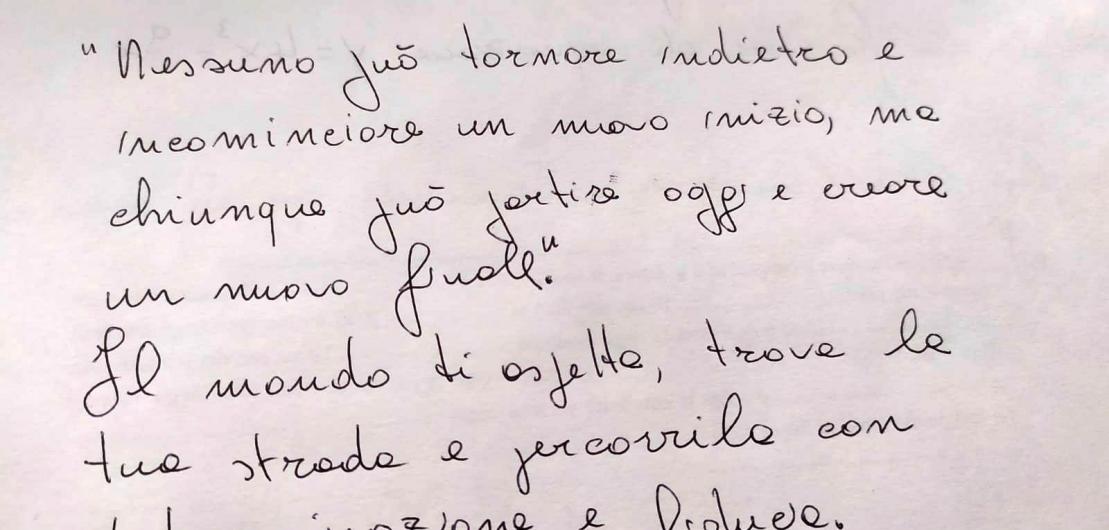 "Nessuno può tornare indietro e
incominciare un nuovo inizio, ma
chiunque può partire oggi e creare
un nuovo finale."
Il mondo ti aspetta, trova la
tua strada e percorrila con